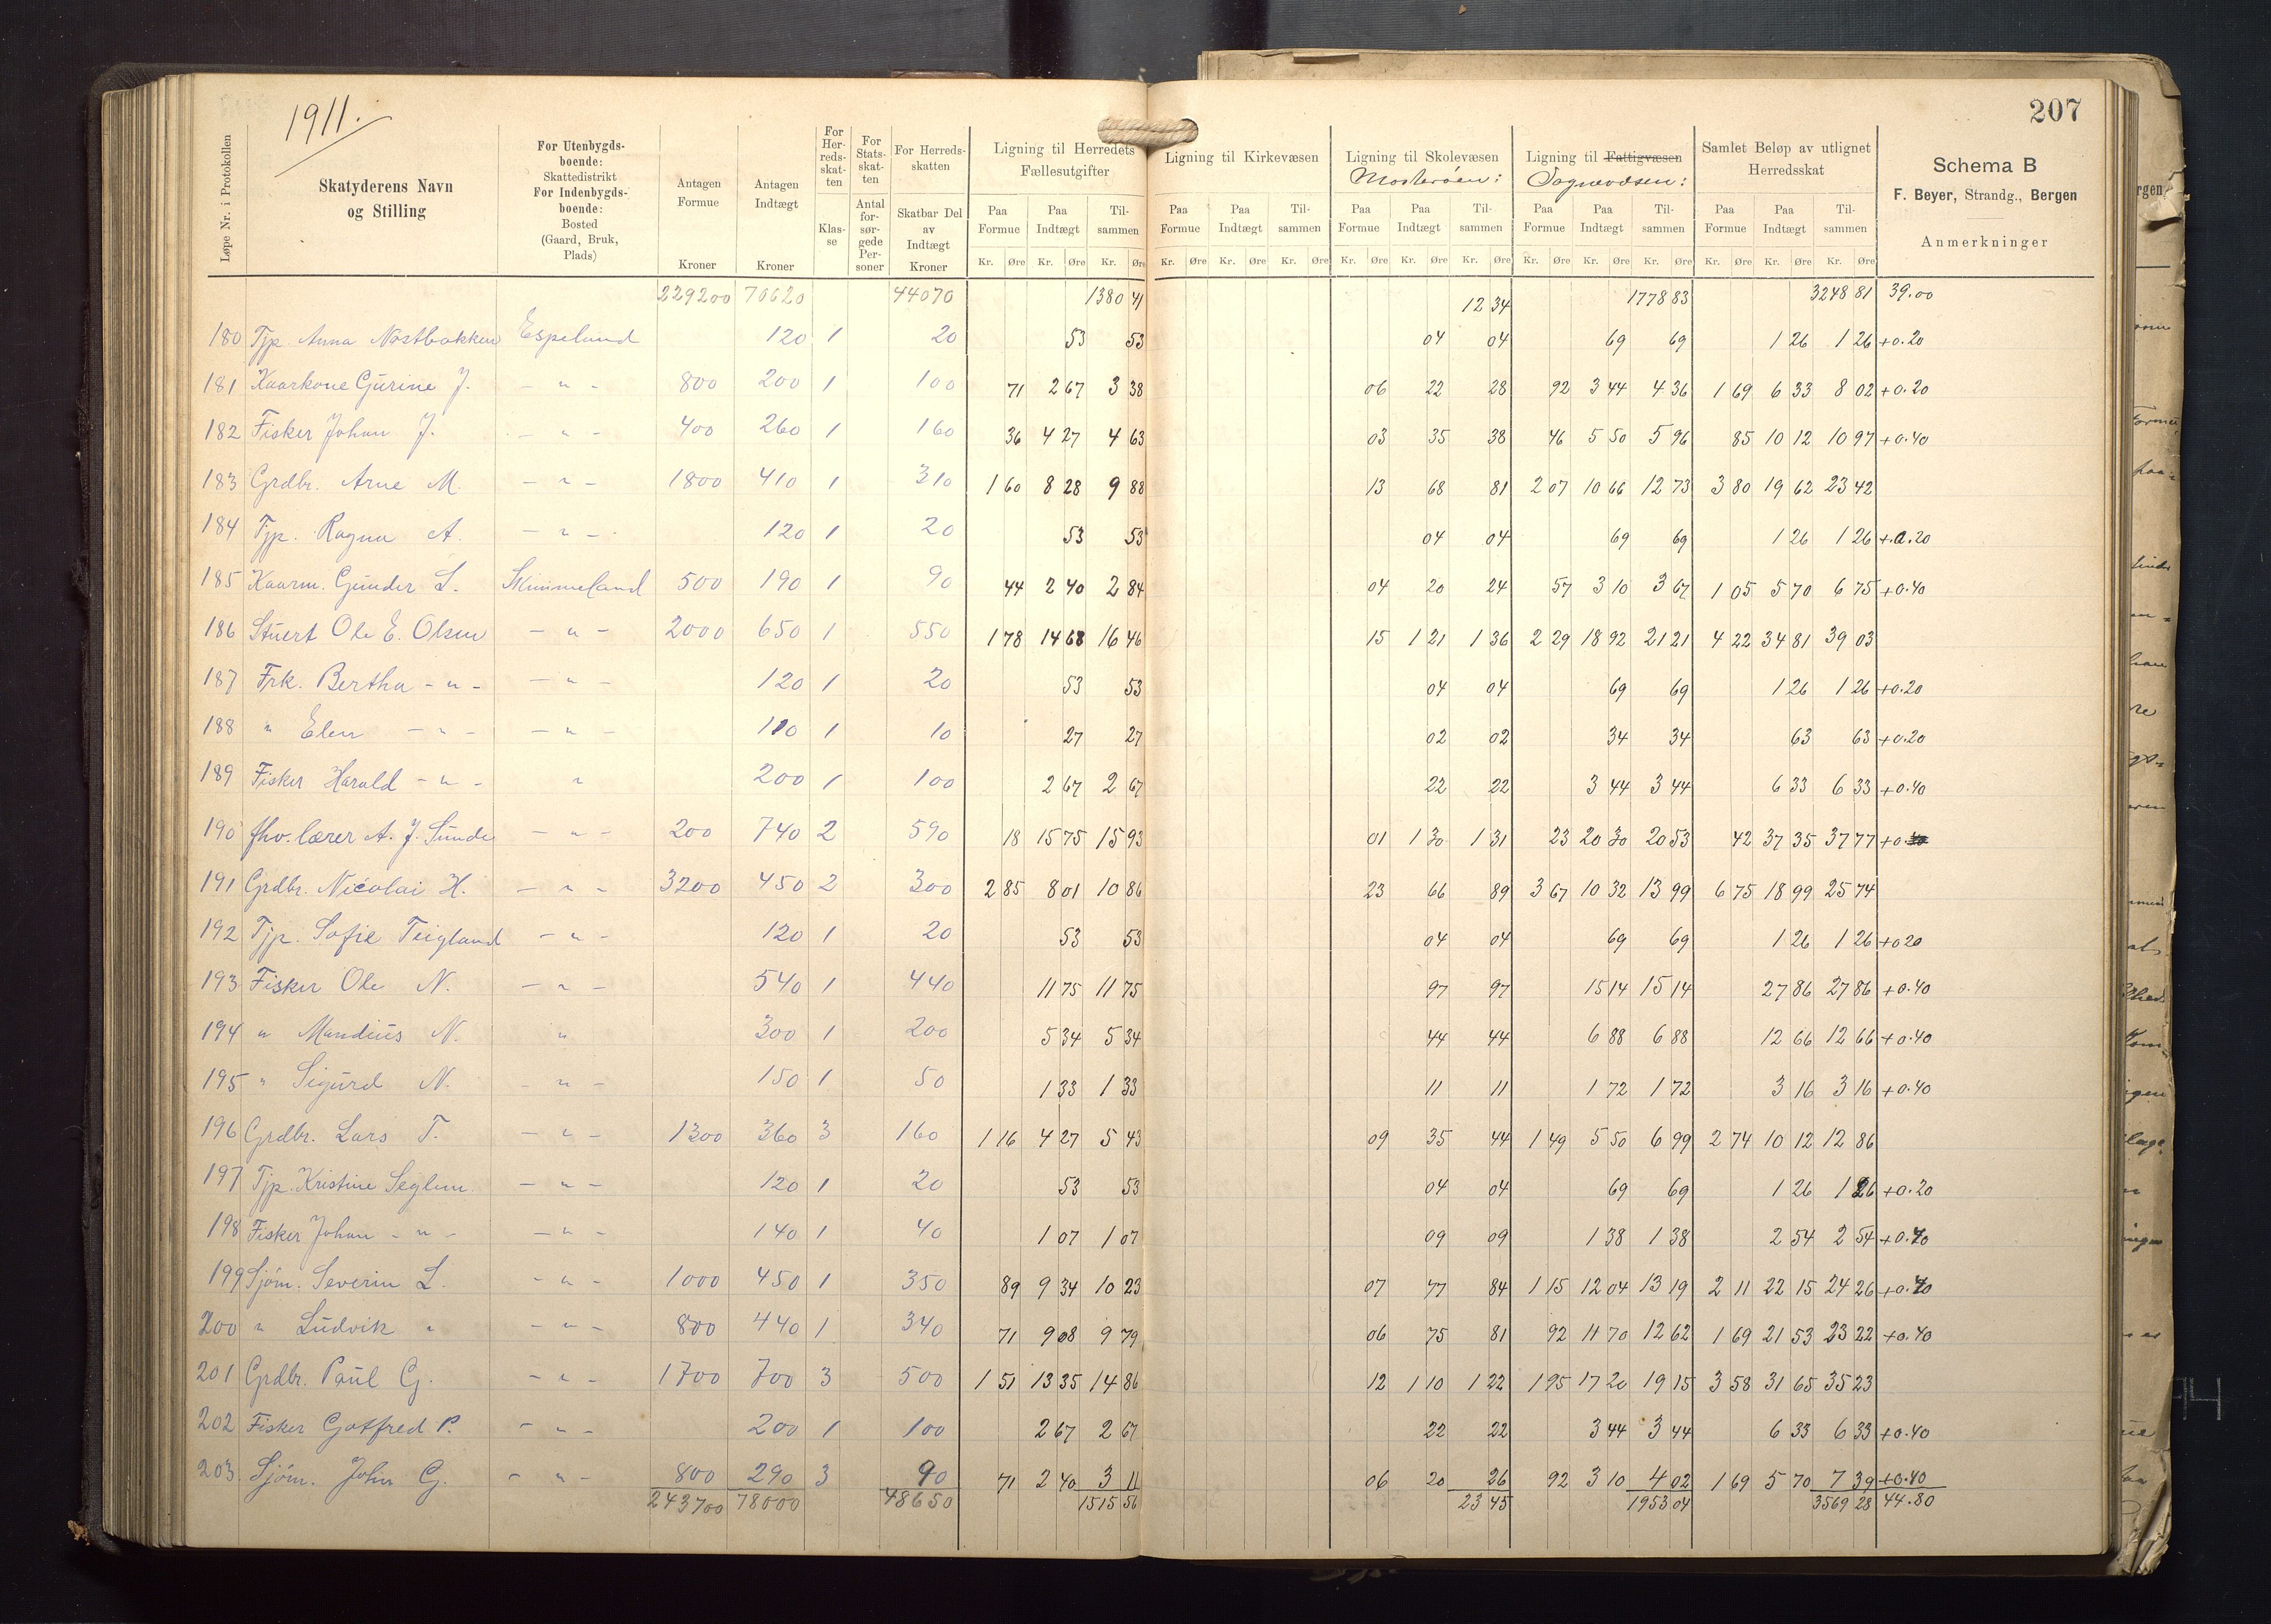 1911.
207
Løpe Nr. i Protokollen
Skatyderens Navn og Stilling
For Utenbygdsboende: Skattedistrikt For Indenbygdsboende: Bosted (Gaard, Bruk, Plads)
Antagen Formue Kroner
Antagen Indtægt Kroner
For Herredsskatten Klasse
For Statsskatten Antal forsørgede Personer
For Herredsskatten Skatbar Del av Indtægt Kroner
Ligning til Herredets Fællesutgifter
Ligning til Kirkevæsen
Ligning til Skolevæsen Mosterøen:
Ligning til Fattigvæsen Sognevæsen:
Samlet Beløp av utlignet Herredsskat
Schema B
F. Beyer, Strandg., Bergen
Anmerkninger
Paa Formue Paa Indtægt Tilsammen Paa Formue Paa Indtægt Tilsammen Paa Formue Paa Indtægt Tilsammen Paa Formue Paa Indtægt Tilsammen Paa Formue Paa Indtægt Tilsammen
Kr. Øre Kr. Øre Kr. Øre Kr. Øre Kr. Øre Kr. Øre Kr. Øre Kr. Øre Kr. Øre Kr. Øre Kr. Øre Kr. Øre Kr. Øre Kr. Øre Kr. Øre
229200 70620 44070 1380 41 12 34 1778 83 3248 81 39.00
180 Tjp. Anna Nostbakken Espeland 120 1 20 53 53 04 04 69 69 1 26 1 26 +0.20
181 Kaarkone Gurine J. - " - 800 200 1 100 71 2 67 3 38 06 22 28 92 3 44 4 36 1 69 6 33 8 02 +0.20
182 Fisker Johan J. - " - 400 260 1 160 36 4 27 4 63 03 35 38 46 5 50 5 96 85 10 12 10 97 +0.40
183 Grdbr. Arne M. - " - 1800 410 1 310 1 60 8 28 9 88 13 68 81 2 07 10 66 12 73 3 80 19 62 23 42
184 Tjp. Ragna A. - " - 120 1 20 53 53 04 04 69 69 1 26 1 26 +0.20
185 Kaarm. Gunder L. Skimmeland 500 190 1 90 44 2 40 2 84 04 20 24 57 3 10 3 67 1 05 5 70 6 75 +0.40
186 Stuert Ole E. Olsen - " - 2000 650 1 550 1 78 14 68 16 46 15 1 21 1 36 2 29 18 92 21 21 4 22 34 81 39 03
187 Frk. Bertha - " - - " - 120 1 20 53 53 04 04 69 69 1 26 1 26 +0.20
188 " Elen - " - - " - 110 1 10 27 27 02 02 34 34 63 63 +0.20
189 Fisker Harald - " - " 200 1 100 2 67 2 67 22 22 3 44 3 44 6 33 6 33 +0.40
190 fhv. lærer A. J. Sunde - " - 200 740 2 590 18 15 75 15 93 01 1 30 1 31 23 20 30 20 53 42 37 35 37 77 +0.
191 Grdbr. Nicolai H. - " - 3200 450 2 300 2 85 8 01 10 86 23 66 89 3 67 10 32 13 99 6 75 18 99 25 74
192 Tjp. Sofie Teigland - " - 120 1 20 53 53 04 04 69 69 1 26 1 26 +0 20
193 Fisker Ole N. - " - 540 1 440 11 75 11 75 97 97 15 14 15 14 27 86 27 86 +0.40
194 " Mandius N. " 300 1 200 5 34 5 34 44 44 6 88 6 88 12 66 12 66 +0.40
195 " Sigurd N. - " - 150 1 50 1 33 1 33 11 11 1 72 1 72 3 16 3 16 +0.40
196 Grdbr. Lars T. - " - 1300 360 3 160 1 16 4 27 5 43 09 35 44 1 49 5 50 6 99 2 74 10 12 12 86
197 Tjp. Kristine Seglem - " - 120 1 20 53 53 04 04 69 69 1 26 1 26 +0.20
198 Fisker Johan - " - - " - 140 1 40 1 07 1 07 09 09 1 38 1 38 2 54 2 54 +0.40
199 Sjøm. Severin L. - " - 1000 450 1 350 89 9 34 10 23 07 77 84 1 15 12 04 13 19 2 11 22 15 24 26 +0.40
200 " Ludvik " - " - 800 440 1 340 71 9 08 9 79 06 75 81 92 11 70 12 62 1 69 21 53 23 22 +0.40
201 Grdbr. Paul G. - " - 1700 700 3 500 1 51 13 35 14 86 12 1 10 1 22 1 95 17 20 19 15 3 58 31 65 35 23
202 Fisker Gotfred P. - " - 200 1 100 2 67 2 67 22 22 3 44 3 44 6 33 6 33 +0.40
203. Sjøm. John G. - " - 800 290 3 90 71 2 40 3 11 06 20 26 92 3 10 4 02 1 69 5 70 7 39 +0.40
243700 78000 48650 1515 56 23 45 1953 04 3569 28 44.80